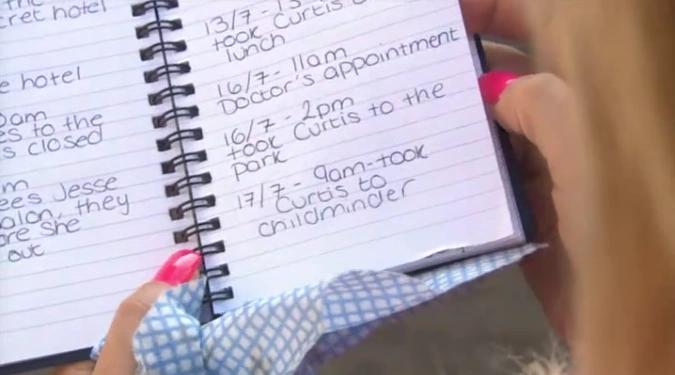 cret hotel
e hotel
am
es to the
s closed
m
ees Jesse
alon, they
ore she
out
13/7 -
took Curtis
lunch
16/7 - 11am
Doctor's appointment
16/7 - 2pm
took Curtis to the
park
17/7 - 9am - took
Curtis to
childminder